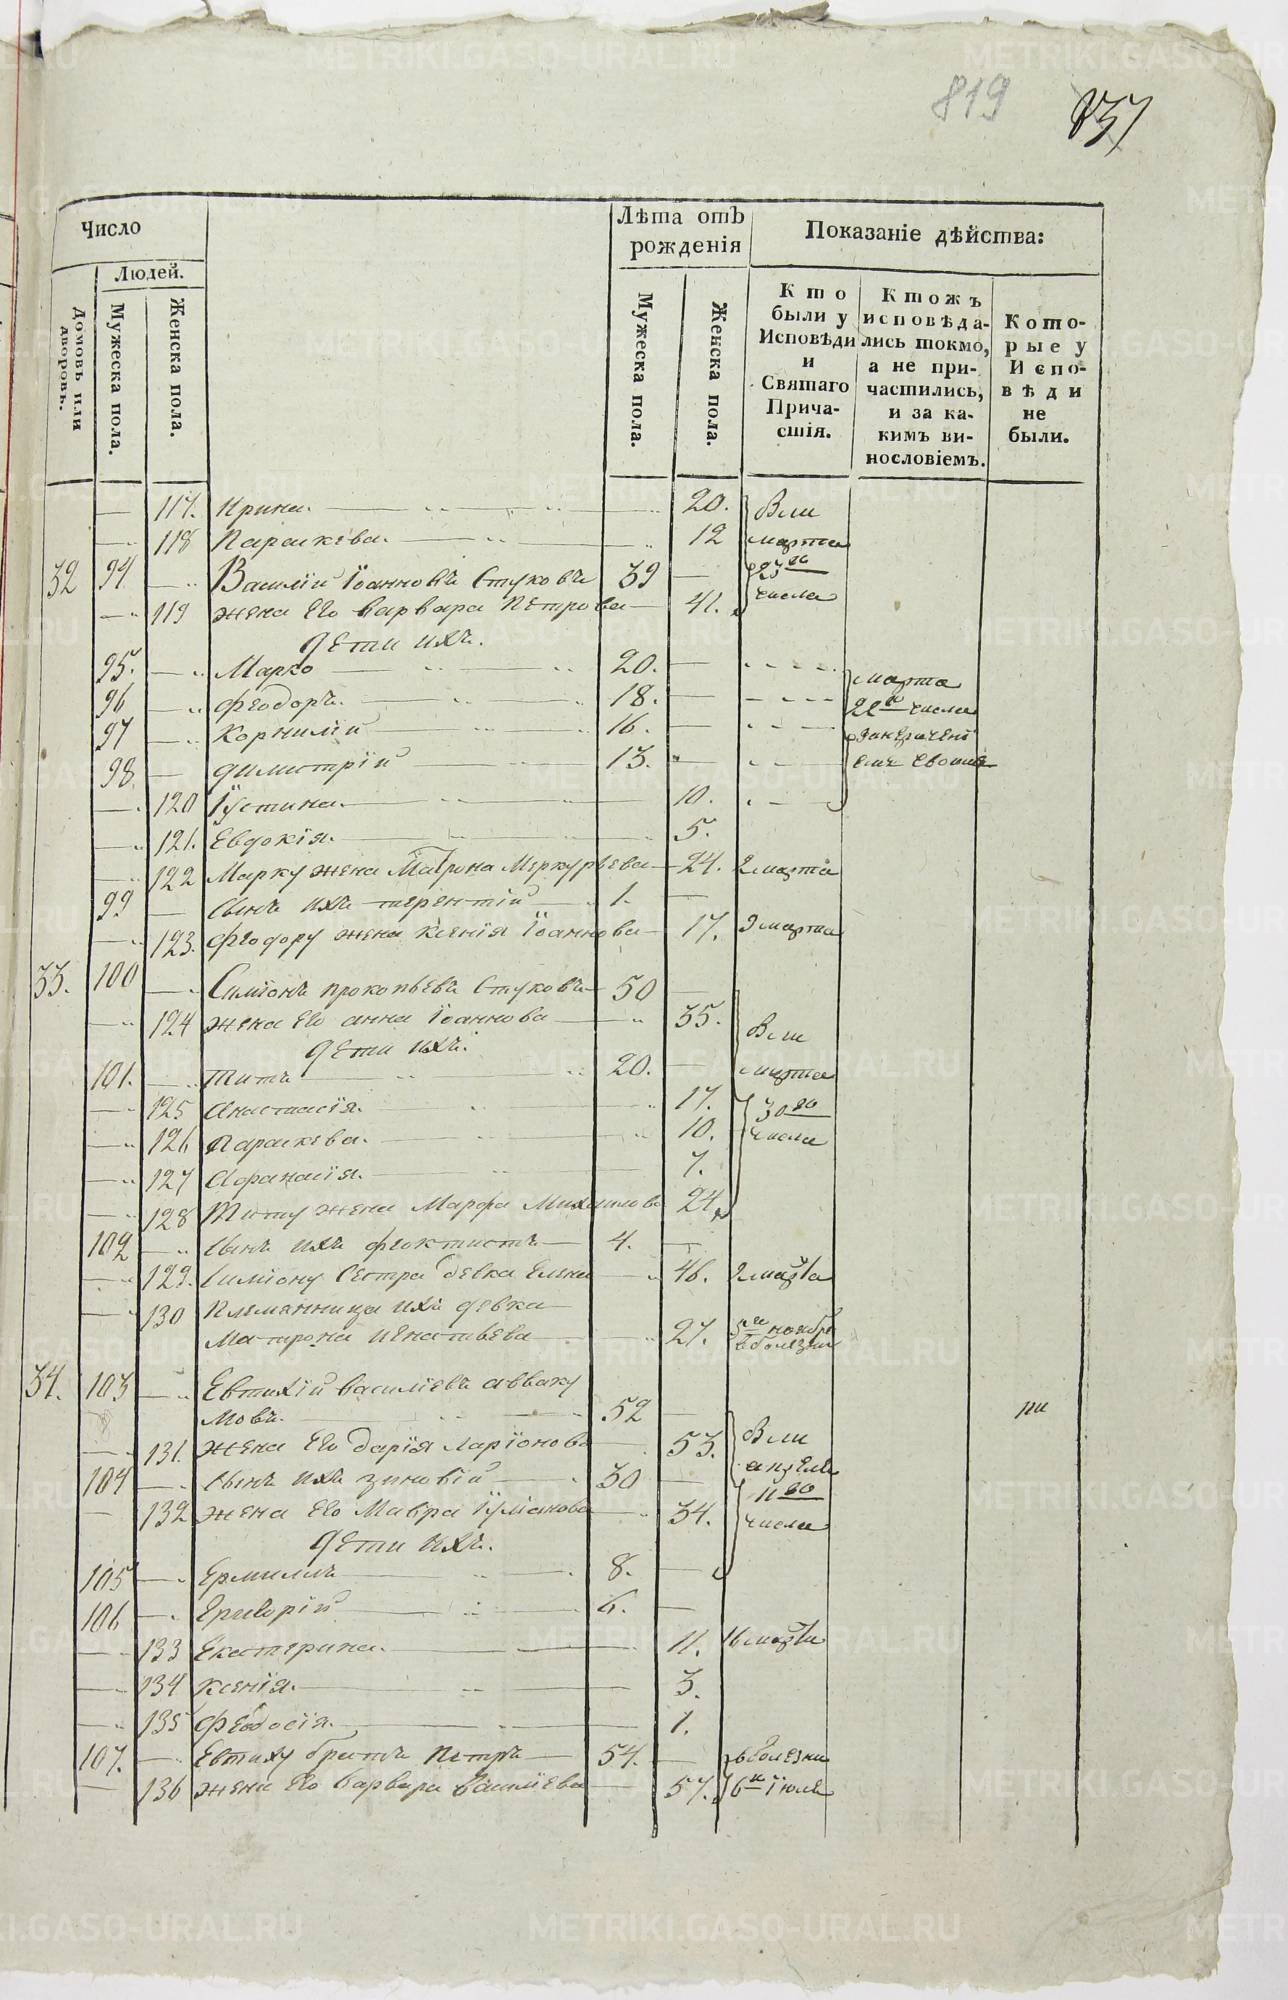 819
837
Число
Лѣта отъ рожденія
Показаніе дѣйства:
Людей.
Домовъ или дворовъ.
Мужеска пола.
Женска пола.
Мужеска пола.
Женска пола.
Кто были у Исповѣди и Святаго Причастія.
Ктожъ исповѣдались токмо, а не причастились, и за какимъ винословіемъ.
Которые у Исповѣди не были.
117. Ирина. 20. Вси
118 Параскева. 12 марта
32 94 Василій Іоанновъ Стуковъ 39 23го
119 жена его Варвара Петрова 41. числа
дети ихъ.
95. Марко 20. марта
96 Феодоръ. 18. 22 числа
97 Корнилий 16.
98. Димитрій 13.
120 Іустина. 10.
121. Евдокія. 5.
122 Марку жена Матрона Меркурьева 24. 2 марта
99 сынъ ихъ терентій 1.
123. Феодору жена Ксенія Іоаннова 17. 9 марта
33. 100 Симіонъ прокопьевъ Стуковъ 50
124 жена его анна Іоаннова 35. Вси
дети ихъ.
101. Титъ 20. марта
125 Анастасія. 17. 30го
126 Параскева. 10. числа
127 Афанасія. 7.
128 Титу жена Марфа Михаилова 24
102 сынъ ихъ феоктистъ 4.
129. Симіону сестра девка Елена 46. 2 марта
130 Племянница ихъ девка
Матрона Игнатьева 27. ноября
в болезни
34. 103 Евтихій василіевъ авваку
мовъ. 52
131. жена его дарія ларіонова 53. Вси
104 сынъ ихъ зиновій 30 апреля
132 жена его Мавра Іуліанова 34. 11го числа
дети ихъ.
105 Ермилъ 8.
106 Григорій 6.
133 Екатерина. 11. 16 марта
134 ксенія. 3.
135 Феодосія. 1.
107. Евтиху братъ Петръ 54. в болезни
136 жена его варвара Василіева 57. 6 Іюля